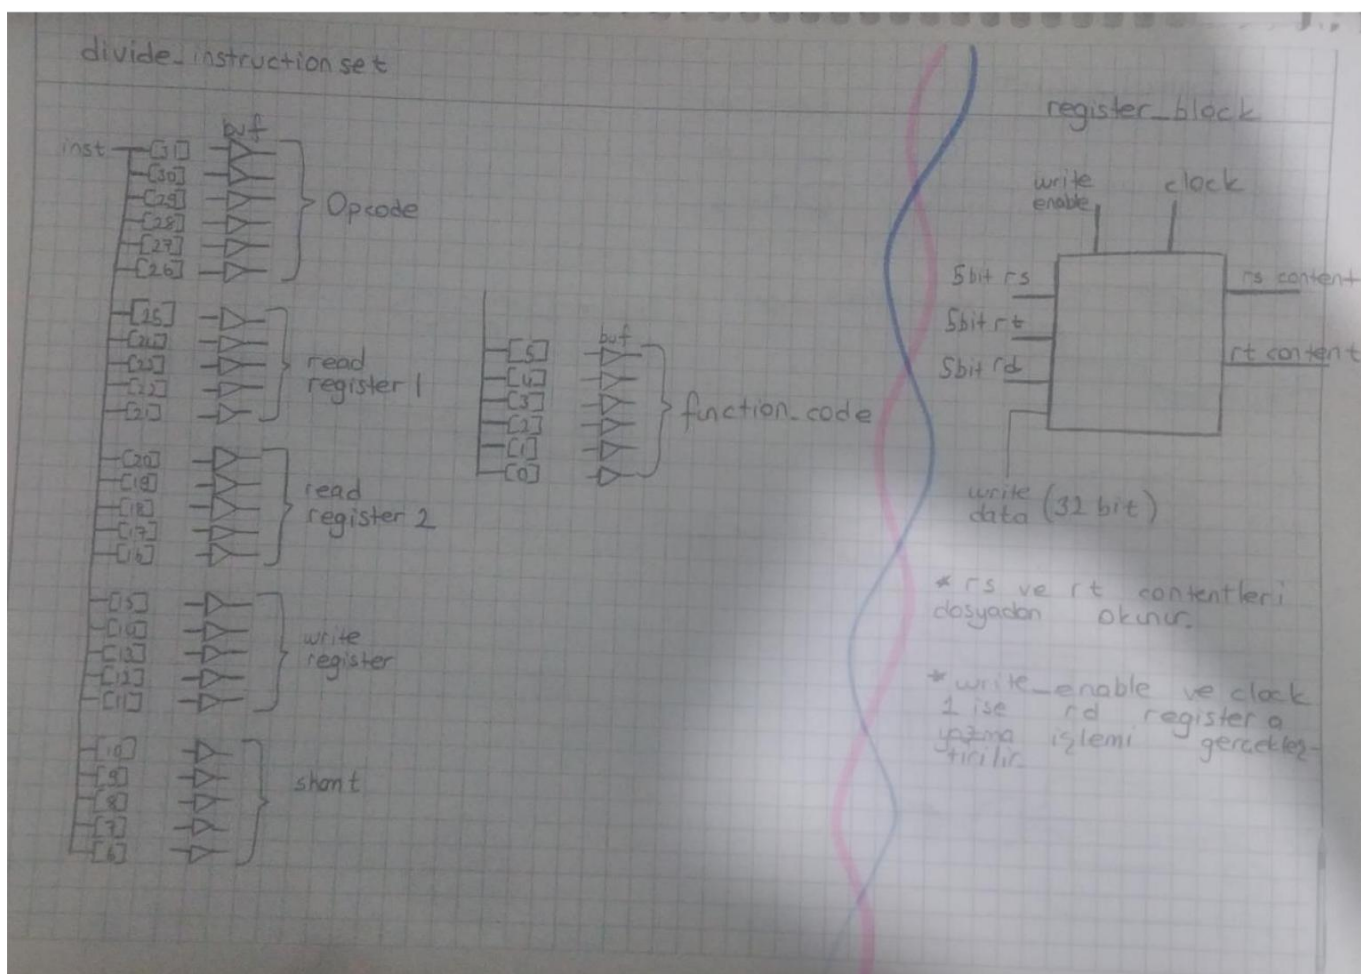 divide_instruction set
buf
inst
[31]
[30]
[29]
[28]
[27]
[26]
Opcode
[25]
[24]
[23]
[22]
[21]
read
register 1
[20]
[19]
[18]
[17]
[16]
read
register 2
[15]
[14]
[13]
[12]
[11]
write
register
[10]
[9]
[8]
[7]
[6]
shamt
buf
[5]
[4]
[3]
[2]
[1]
[0]
function_code
register_block
write
enable
clock
5bit rs
5bit rt
5bit rd
rs content
rt content
write
data (32 bit)
* rs ve rt contentleri
dosyadan okunur.
* write_enable ve clock
1 ise rd register a
yazma işlemi gerçekleş-
tirilir.